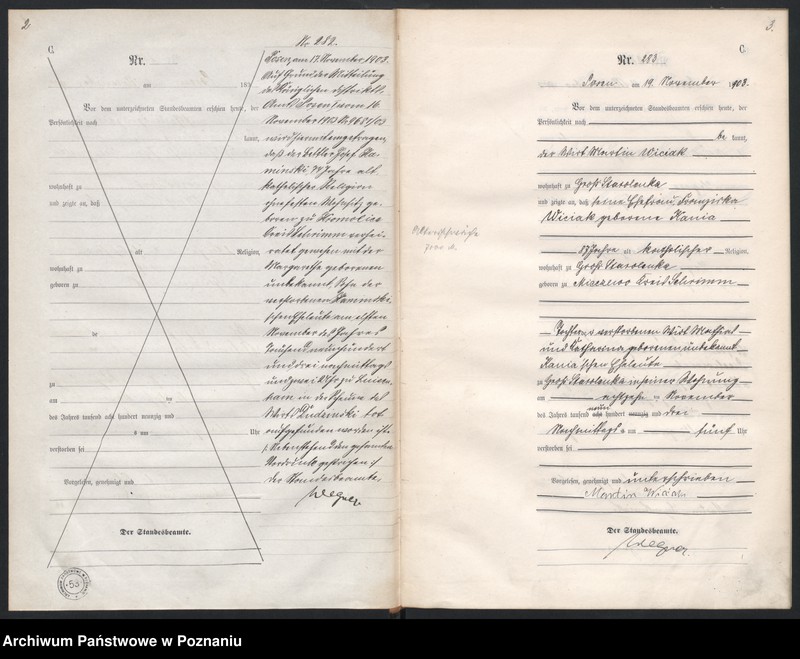 2
C.
Nr.
am 190
Vor dem unterzeichneten Standesbeamten erschien heute, der
Persönlichkeit nach
kannt,
wohnhaft zu
und zeigte an, daß
alt Religion,
wohnhaft zu
geboren zu
de
zu
am ten
des Jahres tausend acht hundert neunzig und
um Uhr
verstorben sei
Vorgelesen, genehmigt und
Der Standesbeamte.
Nr. 282.
Posen, am 17. November 1903.
Auf Grund der Mitteilung
des Königlichen Distrikts
Amts Posen vom 14.
November 1903
wird heute eingetragen,
daß der Bettler Josef Ka-
minski, Jahre alt
katholischer Religion
ohne festen Wohnsitz, ge-
boren zu
Kreis Schrimm verhei-
ratet gewesen mit der
Margaretha geborenen
unbekannt, Sohn der
verstorbenen Kaminski-
schen Eheleute am elften
November des Jahres
tausend neunhundert
und drei nachmittags
und zwei Uhr zu
in der Scheune des
Wirts tot
aufgefunden worden ist.
Nebenstehend dem gesamten
Vordruck gestrichen
der Standesbeamte
Wegner
3.
C.
Nr. 283
Posen am 19. November 1903.
Vor dem unterzeichneten Standesbeamten erschien heute, der
Persönlichkeit nach
be kannt,
der Wirt Martin Wiciak
wohnhaft zu Groß Starolenka
und zeigte an, daß seine Ehefrau, Franziska
Wiciak geborene Kania
Jahre alt katholischer Religion,
wohnhaft zu Groß Starolenka
geboren zu Kreis Schrimm
Tochter der verstorbenen Wirt
und Catharina geborenen unbekannt
Kania'schen Eheleute
zu Groß Starolenka in seiner Wohnung
am achtzehnten November
neun
des Jahres tausend acht hundert neunzig und drei
Nachmittags um fünf Uhr
verstorben sei
Vorgelesen, genehmigt und unterschrieben
Martin Wiciak
Der Standesbeamte.
Wegner
53
Archiwum Państwowe w Poznaniu